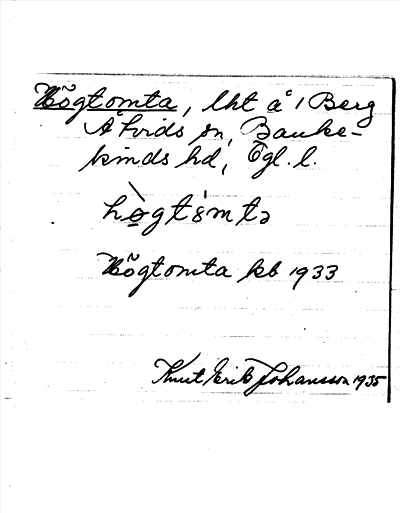 Högtomta, lht å 1 Berg
Åtvids sn, Banke-
kinds hd, Ögl. l.
hògtómtə
Högtomta kb 1933
Knut Erik Johansson 1935